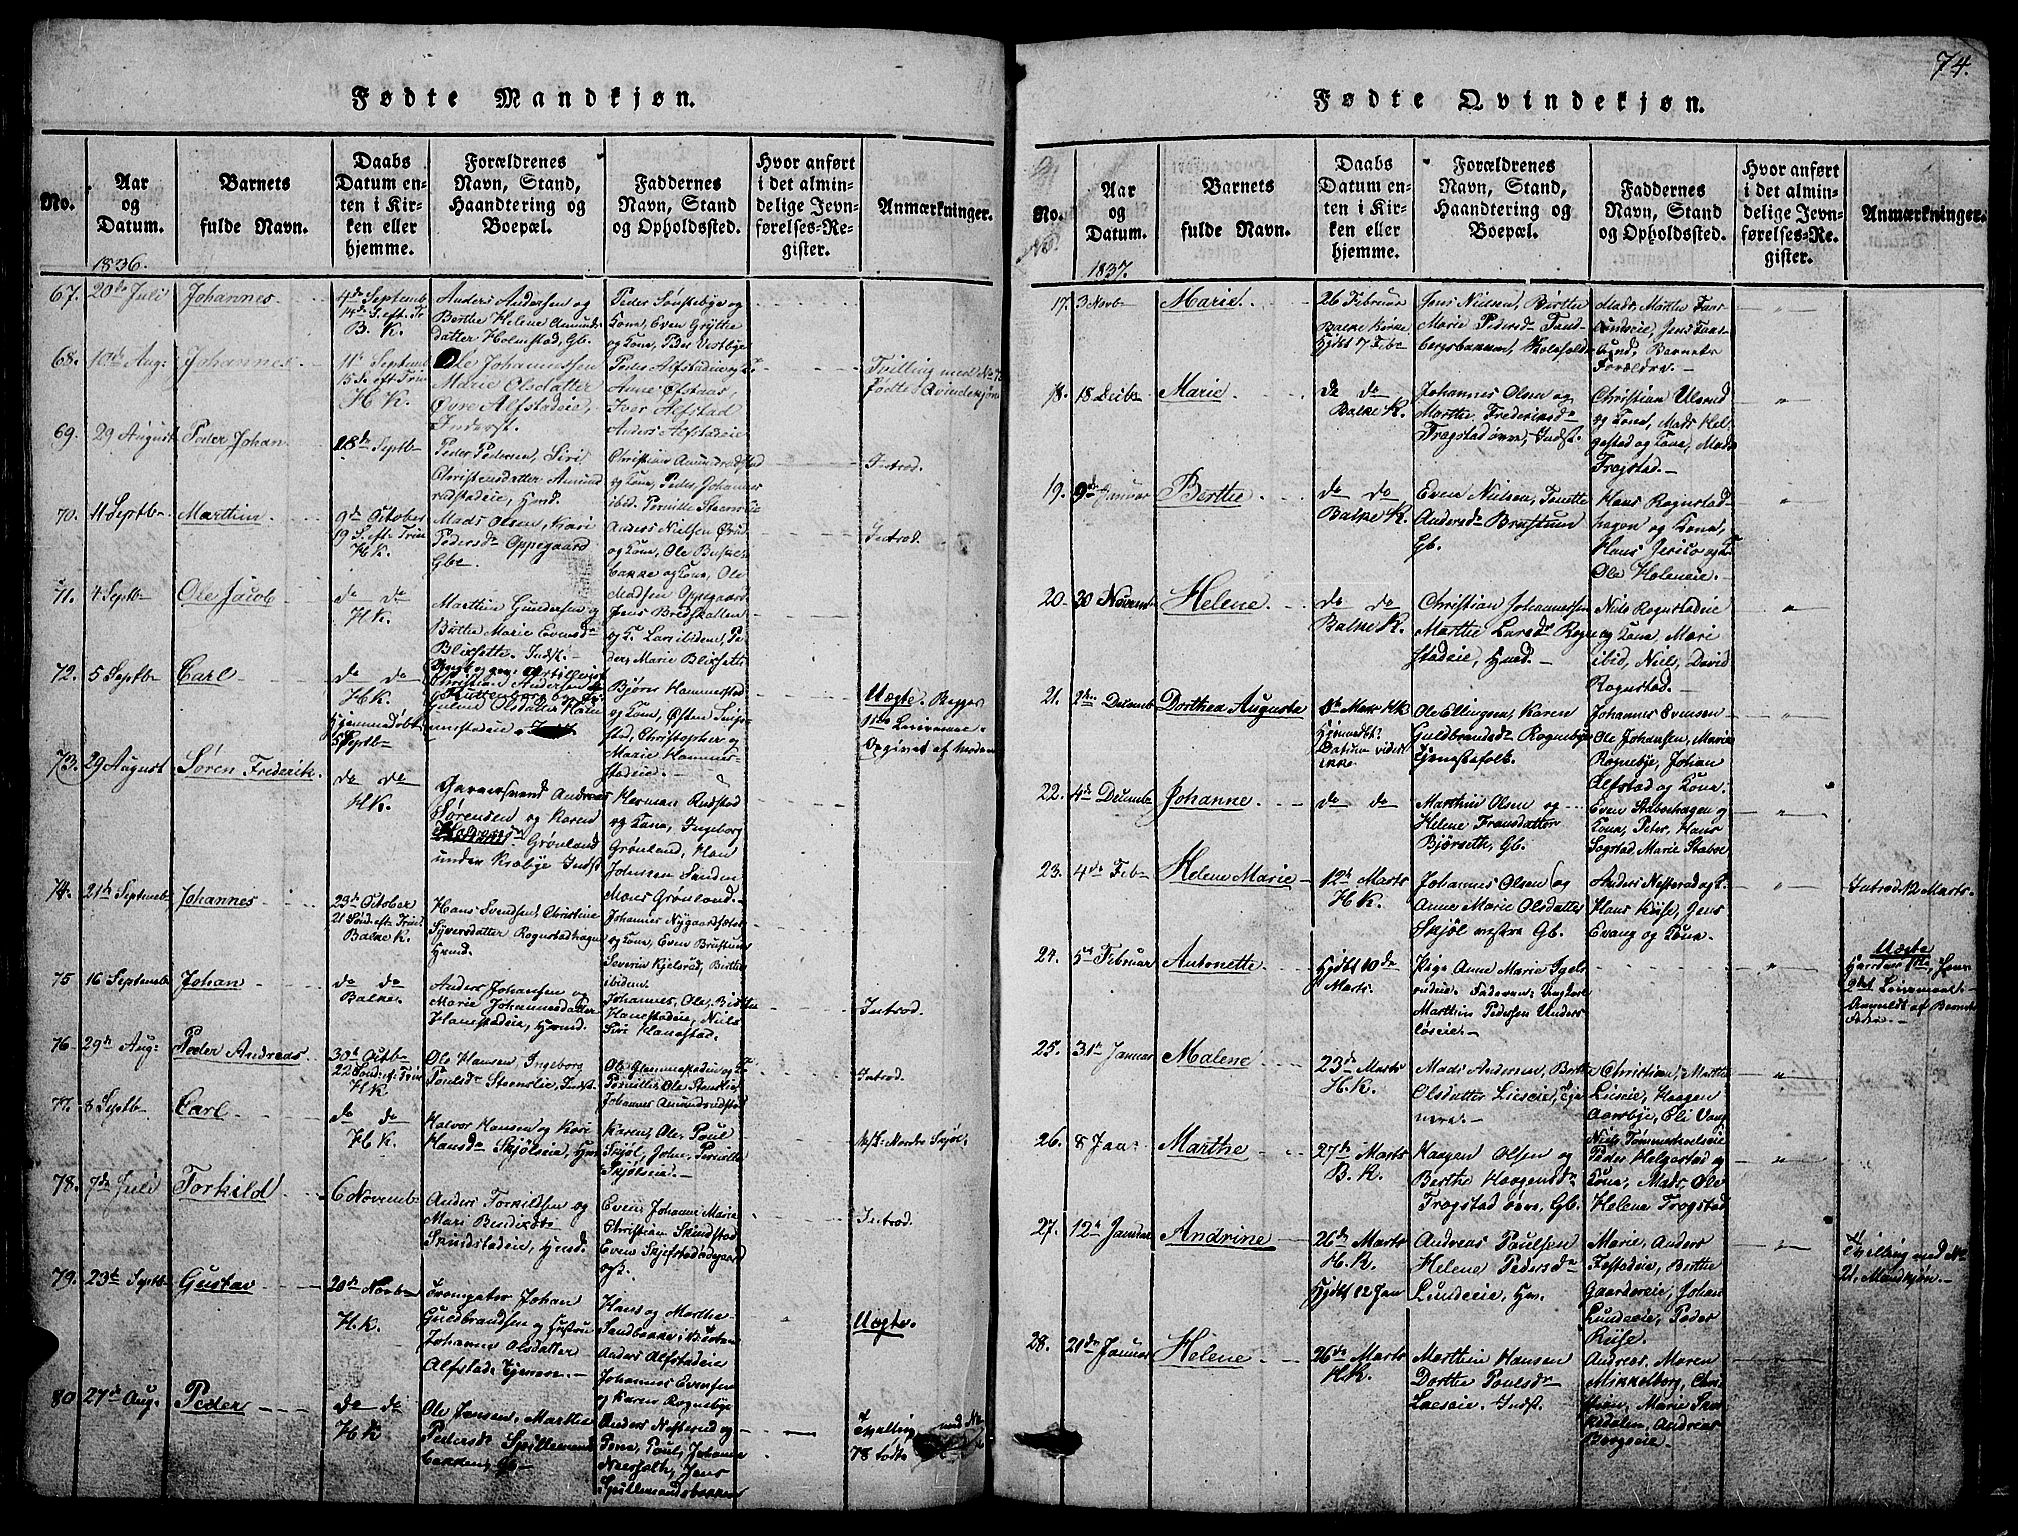 Fødte Mandkjøn.
No.
Aar
og
Datum.
Barnets
fulde Navn.
Daabs
Datum en-
ten i Kir-
ken eller
hjemme.
Forældrenes
Navn, Stand,
Haandtering og
Boepæl.
Faddernes
Navn, Stand
og Opholdssted.
Hvor anført
i det almin-
delige Jevn-
førelses-Re-
gister.
Anmærkninger.
1836.
67.
20de Juli
Johannes
4de Septemb
14de S. eft. Tr
B. K.
Anders Andersen og
Berthe Helene Amunds
datter Holmstad, Gb.
Peder Sønstebye og
Kone, Even Grytte
og Kone, Peder Vestbye
68.
10de Aug:
Johannes
11te Septemb
15 S. eft Trin
H K.
Ole Johannessen
Marie Olsdatter
Øvre Alfstadeie,
Inderst.
Peder Alfstadeie og K
Anne Øfstaas,
Iver Alfstad
Anders Alfstadeie
Tvilling med No
Fødte Qvindekjøn
69.
29 August
Peder Johan
18de Septb
Peder Pedersen, Siri
Christensdatter Amund
radstadeie, Hmd.
Christian Amundradstad
og Kone, Peder, Johannes
ibid. Pernille Steenslie
Introd.
70.
11 Septbr
Marthin
9de October
19 S. eft. Trin
H. K.
Mads Olsen, Kari
Pedersdr Oppegaard
Gbr
Anders Nielsen
og Kone, Ole
bakke og Kone, Ole
Madsen Oppegaard
Introd.
71.
4 Septbr
Ole Jacob
do do
H K.
Marthin Gundersen og
Berthe Marie Evensdr
Blixsette. Indst.
Jens Bredskallen
og K. Lars ibidem, Pe
der, Marie Blixsette
72.
5 Septbr
Carl
do do
H K.
Hjemmedøbt
5 Septbr
Christian Andersen
Guline Olsdatter Ham
merstadeie
Bjørn Hammerstad
og Kone, Østen
stad, Christopher og
Marie Hammer
stadeie.
Uægte. Begges
1ste Leiermaal.
Opgivet af Moderen
73.
29 August
Søren Frederik
do do
H K.
Garversvend Andreas
Sørensen og Karen
Grønland
under Kræbye Indst
Herman Rudstad
og Kone, Ingeborg
Grønland, Hans
Johnsen Sanden
Maren Grønland.
74.
21de Septemb
Johannes
29de October
21 Sønd. eft. Trin
Balke K.
Hans Svendsen, Christine
Syversdatter Rognstadhagen
Hmd.
Johannes Nygaardsæter
og Kone, Even Brustuen
Severin Kjelsrud, Berthe
ibidem
75
16 Septemb
Johan
do do
Balke.
Anders Johansen og
Marie Johannesdatter
Hanestadeie, Hmd.
Johannes, Ole, Berthe
Hanestadeie, Niels
Siri Hanestad.
Introd.
76
29de Aug:
Peder Andreas
30te Octbr
22 Sønd. ef. Trin
H K.
Ole Hansen Ingeborg
Poulsdr Steenslie, Indst
Ole Glemmestadeie og K
Pernille, Ole Steenslie
Johannes Amundrudstad
Introd.
77.
8 Septbr
Carl
do do
H. K.
Halvor Hansen og Kari
Hansdr Skjølseie, Hm
Karen, Ole, Poul
Skjøl, John, Pernille
Skjølseie.
78.
7de Juli
Torkild
6 Novembr
Anders Torkildsen og
Mari Bendiksdr
Skundstadeie, Hmd.
Even, Johanne Marie
Christian Skundstad
Even Skjefstadødegaard
og K.
Introd.
79.
23de Septbr
Gustav
20de Novbr
H. K.
Frompeter Johan
Guldbrandsen og Hustru
Johanne Olsdatter
Alfstad, Tjenere.
Hans og Marthe
Sandbakke, Bersten
Anders Alfstadeie
Johannes Evensen
og Karen Rognebye
Uægte.
80
27de Aug.
Peder
do do
H K
Ole Jensen, Marthe
Pedersdr Spillemands
bakken, Gb.
Anders Nesterud og
Kone, Poul, Johanne
Neersæth, Jens
Spillemandsbakken
Tvilling med No
78 Fødte
74.
Fødte Qvindekjøn.
No.
Aar
og
Datum.
Barnets
fulde Navn.
Daabs
Datum en-
ten i Kir-
ken eller
hjemme.
Forældrenes
Navn, Stand,
Haandtering og
Boepæl.
Faddernes
Navn, Stand
og Opholdssted.
Hvor anført
i det almin-
delige Jevn-
førelses-Re-
gister.
Anmærkninger.
1837.
17.
3 Novb
Marie
26 Februar
Balke Kirke
Hjdbt 7 Febr
Jens Nielsen, Berthe
Marie Pedersdr Tand
bergsbakken
Mads, Marthe Faas
lundseie, Jens Faas
lund, Barnets
Forældre.
18.
18 Decbr
Marie
do do
Balke K.
Johannes Olsen og
Marthe Frederiksdr
Trogstad øvre, Indst.
Christian Ulsrud
og Kone, Mads Hel
gestad og Kone, Mads
Trogstad.
19.
9de Januar
Berthe
do do
Balke K.
Even Nielsen, Jonette
Andersdr Brustuen
Gb.
Hans Rognstad
hagen og Kone,
Hans Jericho og K.
Ole Holeneie.
20.
30 Novembr
Helene.
do do
Balke K.
Christian Johannessen
Marthe Larsdr Rogn
stadeie, Hmd.
Niels Rognstadeie
og Kone, Mari
ibid, Niels, David
Rognstad.
21.
2den Decemb
Dorthea Auguste
8de Marts H K
Hjemmedbt
Datum vides
ikke
Ole Ellingsen, Karen
Guldbrandsdr Rognebye
Tjenestefolk.
Johannes Evensen
Ole Johansen, Marie
Rognebye, Johan
Alfstad og Kone.
22.
4de Decembr
Johanne
do do
Marthin Olsen og
Helene Fransdatter
Bjørseth, Gb.
Even Stabohagen og
Kone, Peter, Hans
Sogstad, Marie Staboe
23.
4de Febr
Helene Marie
12te Marts
H K.
Johannes Olsen og
Anne Marie Olsdatter
Skjøl vestre Gb.
Anders Nesterud og K.
Hans Kiise, Jens
Evang og Kone.
Introd 12 Marts.
24.
5te Februar
Antonette
Hjdbt 10de
Marts.
Pige Anne Marie Igels
rudeie. Faderen: Ungkarl
Marthin Pedersen Unders
löseie.
Uægte
Hendes 1ste, hans
2det Leiermaal.
Anmeldt af Barnets
Fader.
25.
31te Januar
Malene
23de Marts
H. K.
Mads Andersen, Berthe
Olsdatter Lieseie, Tje
nere.
Christian, Marthe
Lieseie, Haagen
Aarsbye, Eli Vang
Niels Tømmerholseie
26.
8 Jan:
Marthe
27de Marts
B. K.
Haagen Olsen og
Berthe Haagensdr
Trogstad øvre, Gb.
Peder Helgestad og
Kone, Mads, Ole
Helene Trogstad
27.
12te Januar
Andrine
26de Marts
H. K.
Hjdbt 12 Jan
Andreas Poulsen
Helene Pedersdr
Lundeeie, Hm.
Marie, Anders
Festadeie, Berthe
Gaardereie, Johan
Lundeeie, Peder
Kiise.
Tvilling med No
21. Mandkjøn.
28.
21de Januar
Helene
26de Marts
H K.
Marthin Hansen
Dorthe Poulsdr
Laeseie. Indst.
Andreas, Maren
Mikkelborg, Chri
stian, Marie
dalen, Andreas
Bergseie.